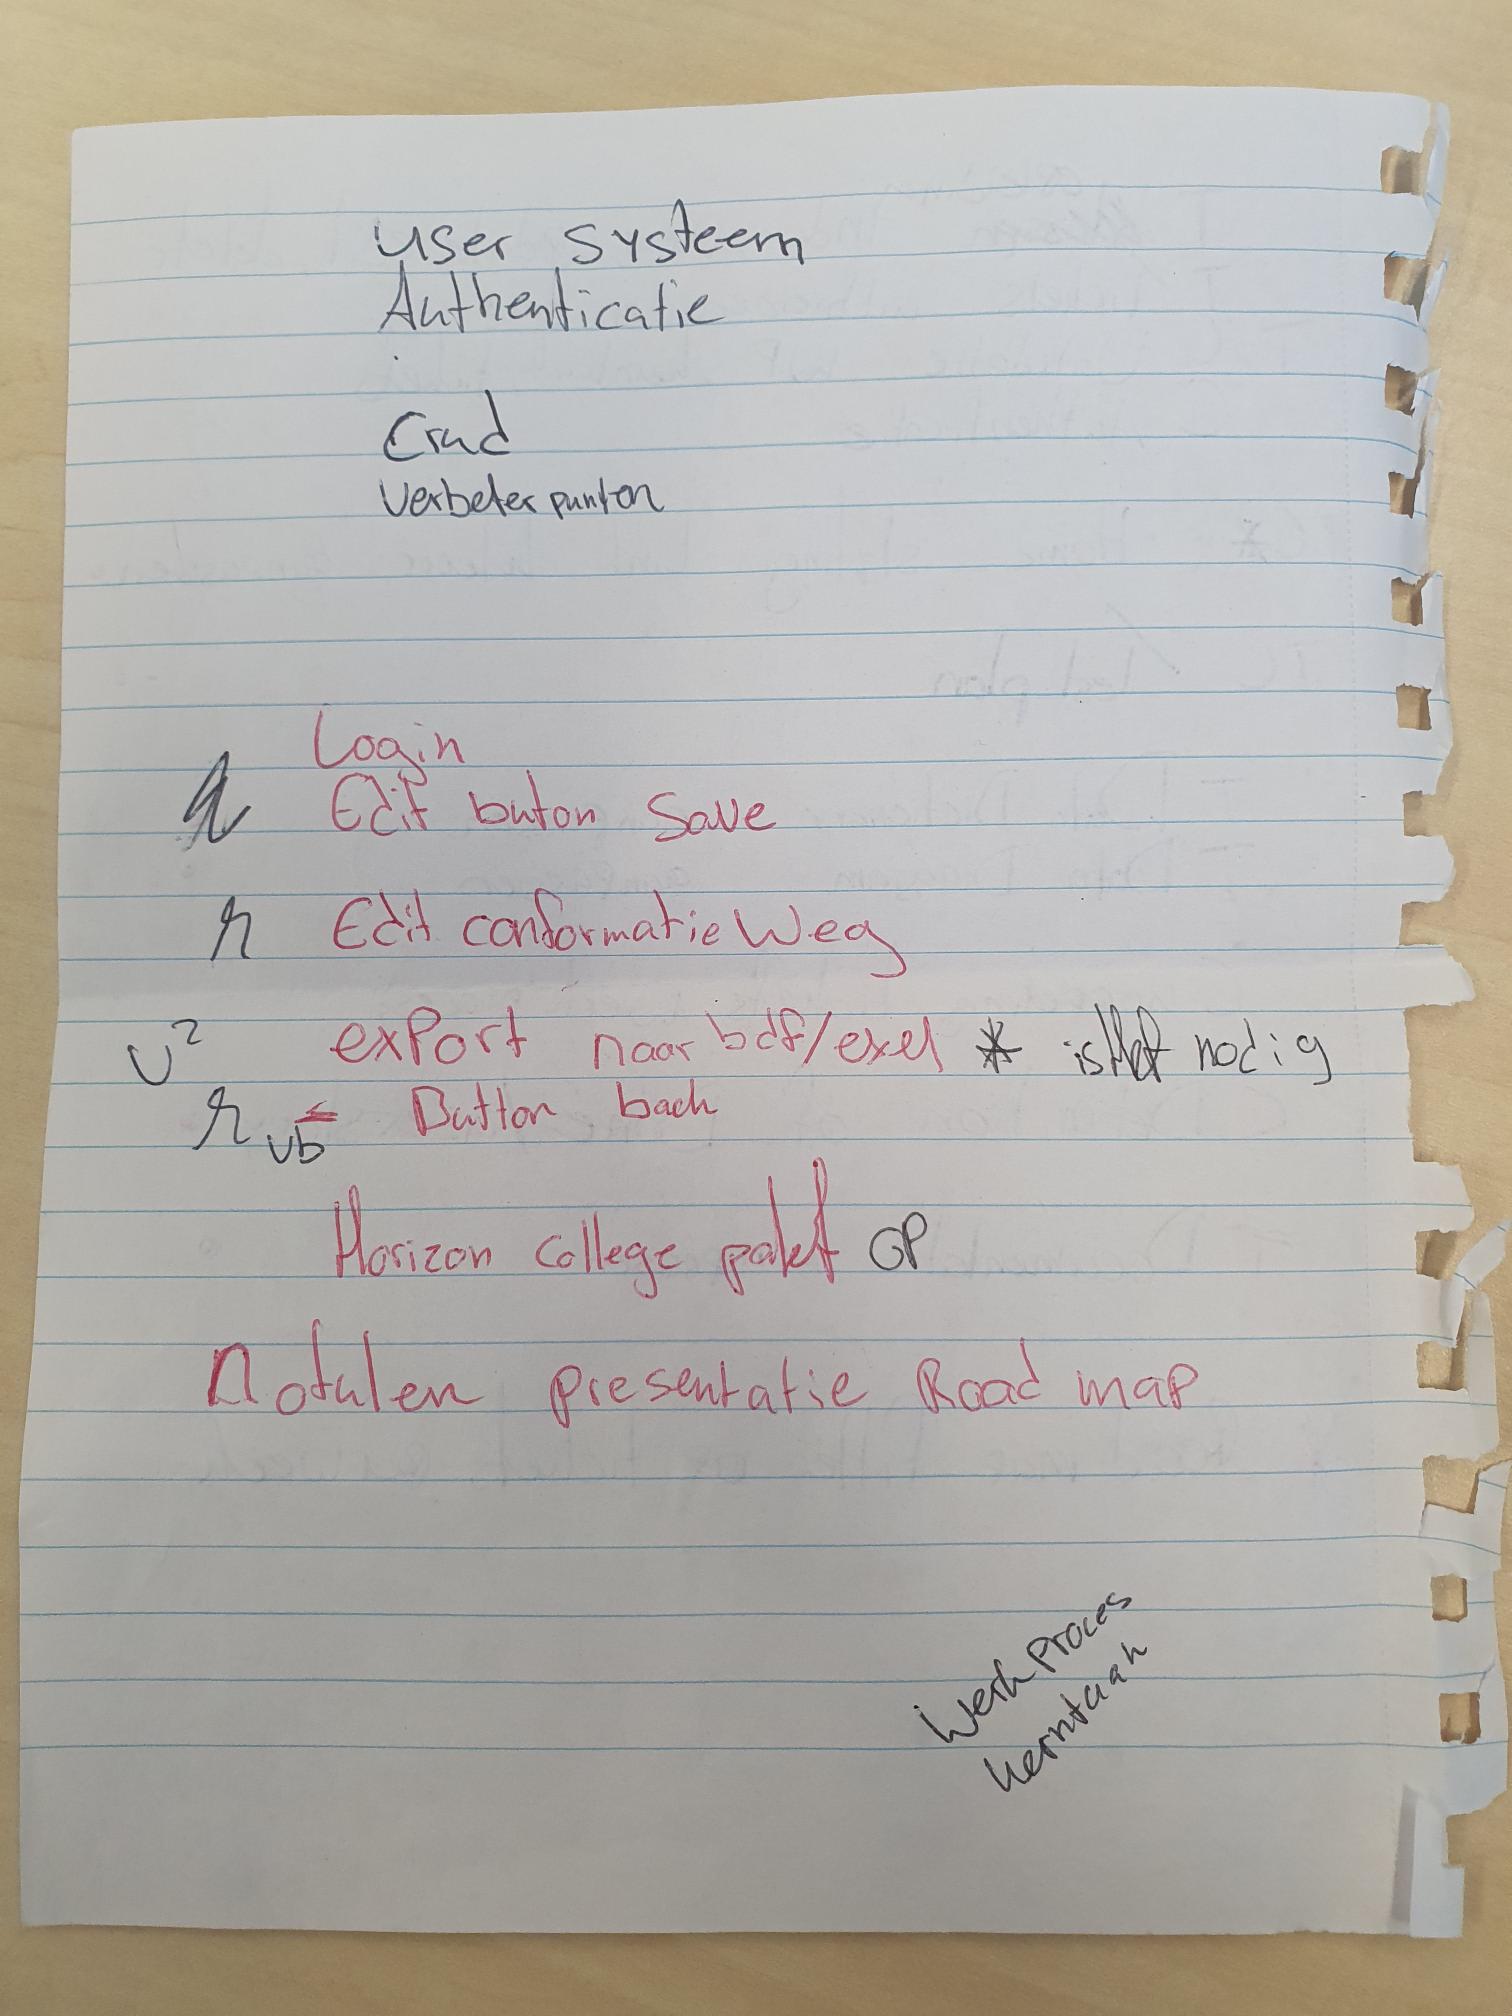 User Systeem
Authenticatie
Crud
Verbeterpunten
Login
Edit buton Save
r Edit conformatie Weg
U² exPort naar bdf/exel * is nodig
r vb Button back
Horizon College paket OP
notulen presentatie Road map
Werk Proces
kerntaak